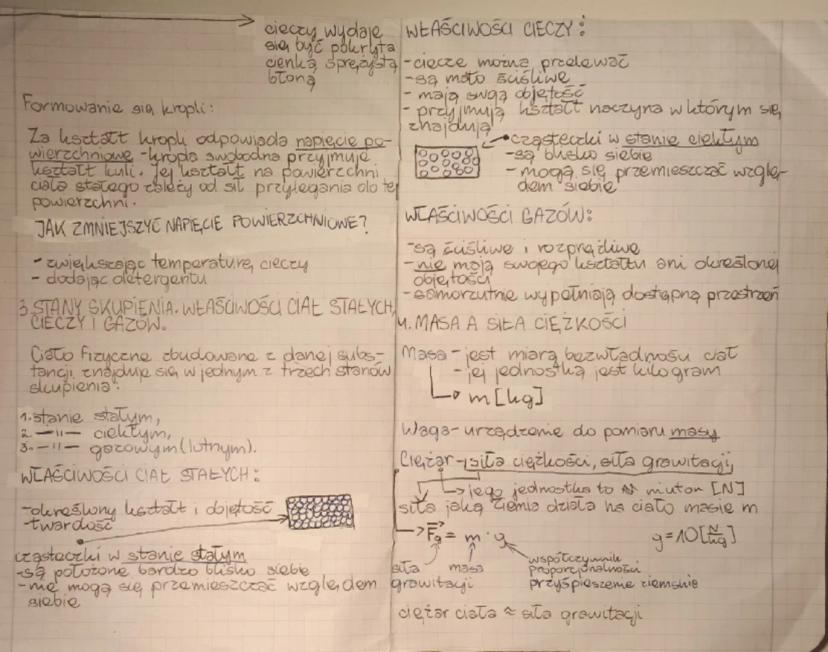 cieczy wydaje
się być pokryta
cienką sprężystą
błoną
Formowanie się kropli:
Za kształt kropli odpowiada napięcie po-
wierzchniowe - kropla swobodna przyjmuje
kształt kuli. Jej kształt na powierzchni
ciała stałego zależy od sił przylegania do tej
powierzchni.
JAK ZMNIEJSZYĆ NAPIĘCIE POWIERZCHNIOWE?
- zwiększając temperaturę cieczy
- dodając detergentu
3. STANY SKUPIENIA. WŁAŚCIWOŚCI CIAŁ STAŁYCH,
CIECZY I GAZÓW.
Ciało fizyczne zbudowane z danej subs-
tancji znajduje się w jednym z trzech stanów
skupienia:
1. stanie stałym,
2. -"- ciekłym,
3. -"- gazowym (lotnym).
WŁAŚCIWOŚCI CIAŁ STAŁYCH:
- określony kształt i objętość
- twardość
cząsteczki w stanie stałym
- są położone bardzo blisko siebie
- nie mogą się przemieszczać względem
siebie
WŁAŚCIWOŚCI CIECZY:
- ciecze można przelewać
- są mało ściśliwe
- mają swoją objętość
- przyjmują kształt naczyna w którym się
znajdują
cząsteczki w stanie ciekłym
- są blisko siebie
- mogą się przemieszczać wzglę-
dem siebie
WŁAŚCIWOŚCI GAZÓW:
- są ściśliwe i rozprężliwe
- nie mają swojego kształtu ani określonej
objętości
- samorzutnie wypełniają dostępną przestrzeń
4. MASA A SIŁA CIĘŻKOŚCI
Masa - jest miarą bezwładności ciał
- jej jednostką jest kilogram
m [kg]
Waga - urządzenie do pomiaru masy
Ciężar - siła ciężkości, siła grawitacji,
jego jednostka to niuton [N]
siła jaką Ziemia działa na ciało masie m
Fg = m · g
g = 10 [N/kg]
siła
grawitacji
masa
współczynnik
proporcjonalności
przyśpieszenie ziemskie
ciężar ciała ≈ siła grawitacji